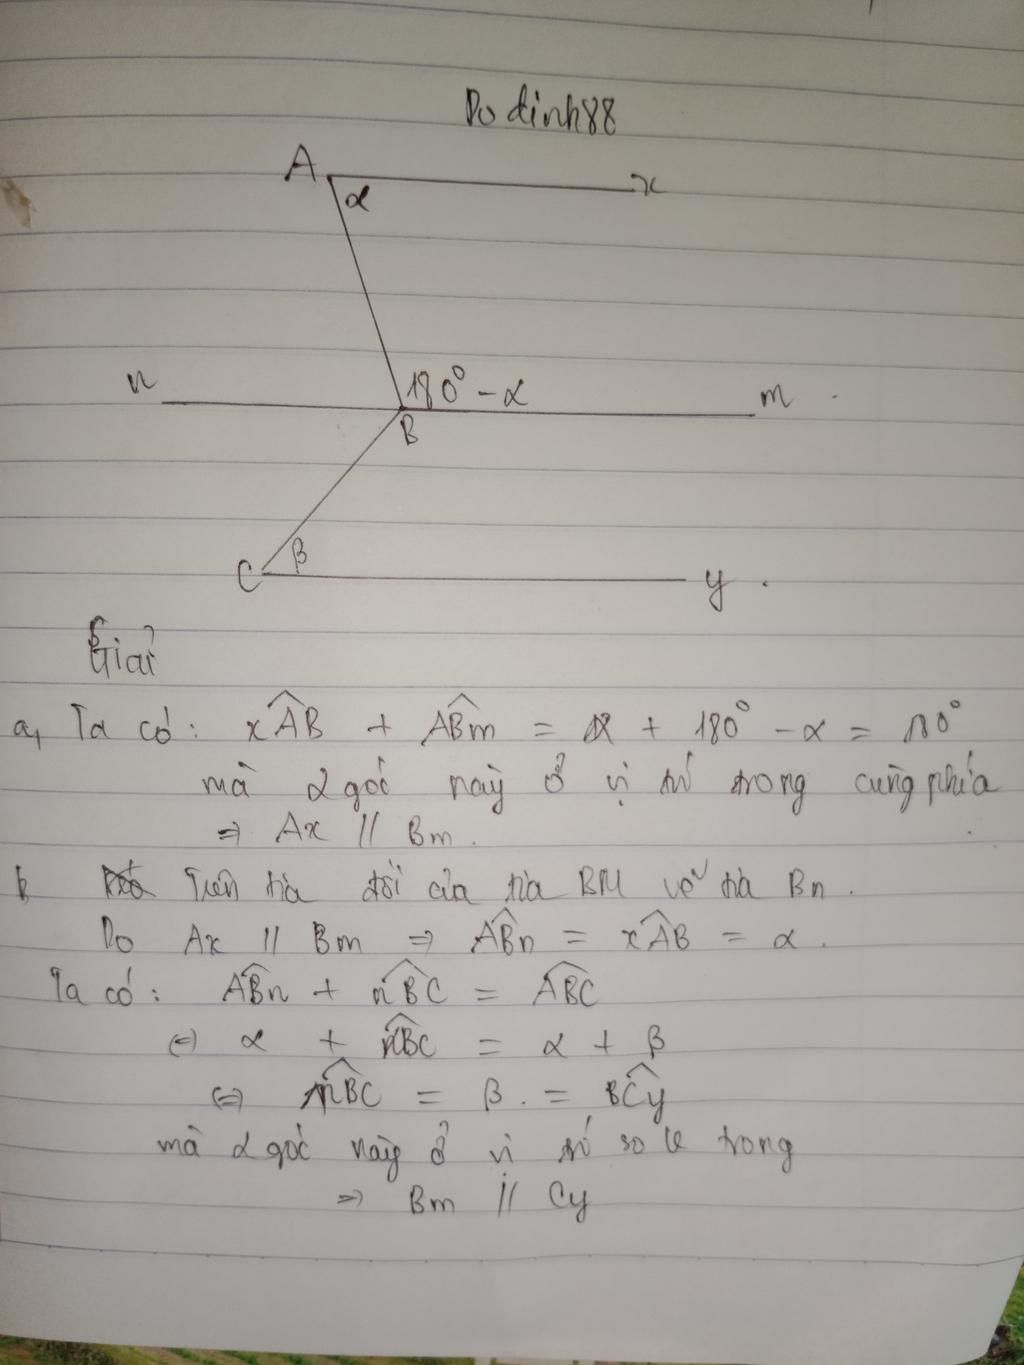 Dođinh88
A
α
x
n
180° - α
m
B
C
β
y
Giải
a, Ta có: xÂB + AB̂m = α + 180° - α = 180°
mà 2 góc này ở vị trí trong cùng phía
⇒ Ax // Bm.
b Trên tia đối của tia BM vẽ tia Bn.
Do Ax // Bm ⇒ AB̂n = xÂB = α.
Ta có: AB̂n + nB̂C = AB̂C
⇔ α + nB̂C = α + β
⇔ nB̂C = β. = BĈy
mà 2 góc này ở vị trí so le trong
⇒ Bm // Cy